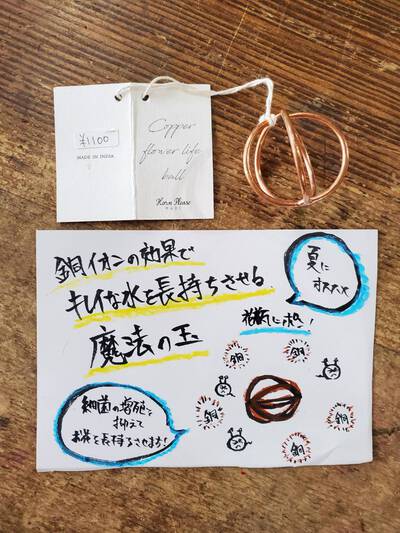 ¥1100
MADE IN INDIA
Copper
flower life
ball
Horn Please
銅イオンの効果で
キレイな水を長持ちさせる
魔法の玉
夏に
オススメ
花瓶にポン!
銅
銅
銅
銅
細菌の増殖を
抑えて
お花を長持ちさせます!